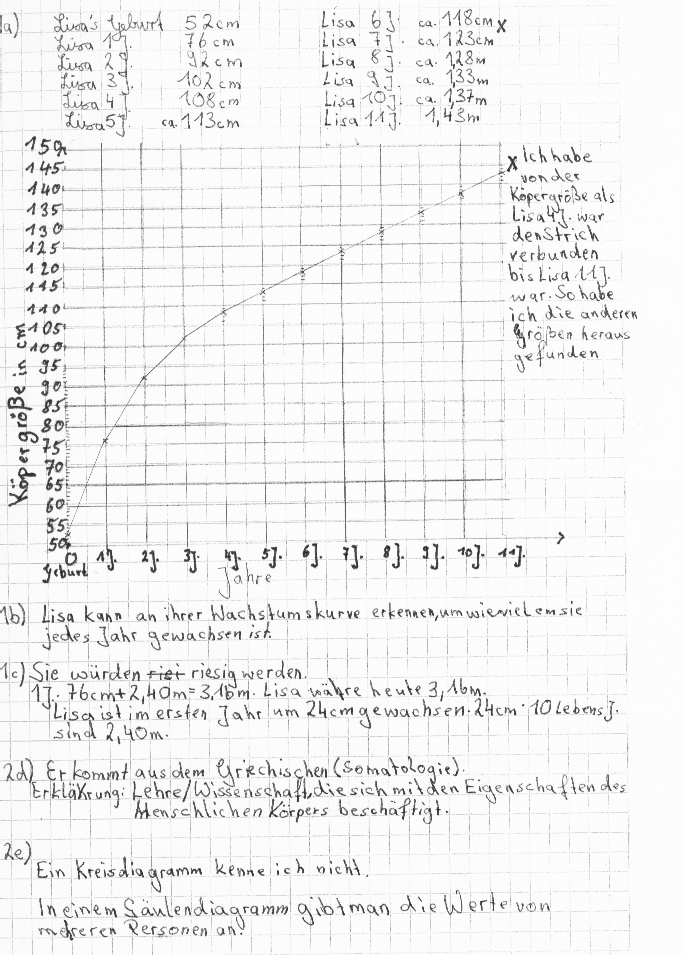 1a) Lisa's Geburt 52cm
Lisa 1J. 76cm
Lisa 2J. 92cm
Lisa 3J. 102cm
Lisa 4J. 108cm
Lisa 5J. ca. 113cm
Lisa 6J. ca. 118cm x
Lisa 7J. ca. 123cm
Lisa 8J. ca. 1,28m
Lisa 9J. ca. 1,33m
Lisa 10J. ca. 1,37m
Lisa 11J. 1,43m
150
145
140
135
130
125
120
115
110
105
100
95
90
85
80
75
70
65
60
55
50
Köpergröße in cm
0 1J. 2J. 3J. 4J. 5J. 6J. 7J. 8J. 9J. 10J. 11J.
Geburt
Jahre
x Ich habe
von der
Köpergröße als
Lisa 4J. war
den Strich
verbunden
bis Lisa 11J.
war. So habe
ich die anderen
größen heraus
gefunden
1b) Lisa kann an ihrer Wachstumskurve erkennen, um wieviel cm sie
jedes Jahr gewachsen ist.
1c) Sie würden riesig werden.
1J. 76cm + 2,40m = 3,16m. Lisa währe heute 3,16m.
Lisa ist im ersten Jahr um 24cm gewachsen. 24cm · 10 Lebensj.
sind 2,40m.
2d) Er kommt aus dem Griechischen (Somatologie).
Erklährung: Lehre/Wissenschaft, die sich mit den Eigenschaften des
Menschlichen Körpers beschäftigt.
2e)
Ein Kreisdiagramm kenne ich nicht.
In einem Säulendiagramm gibt man die Werte von
mehreren Personen an.